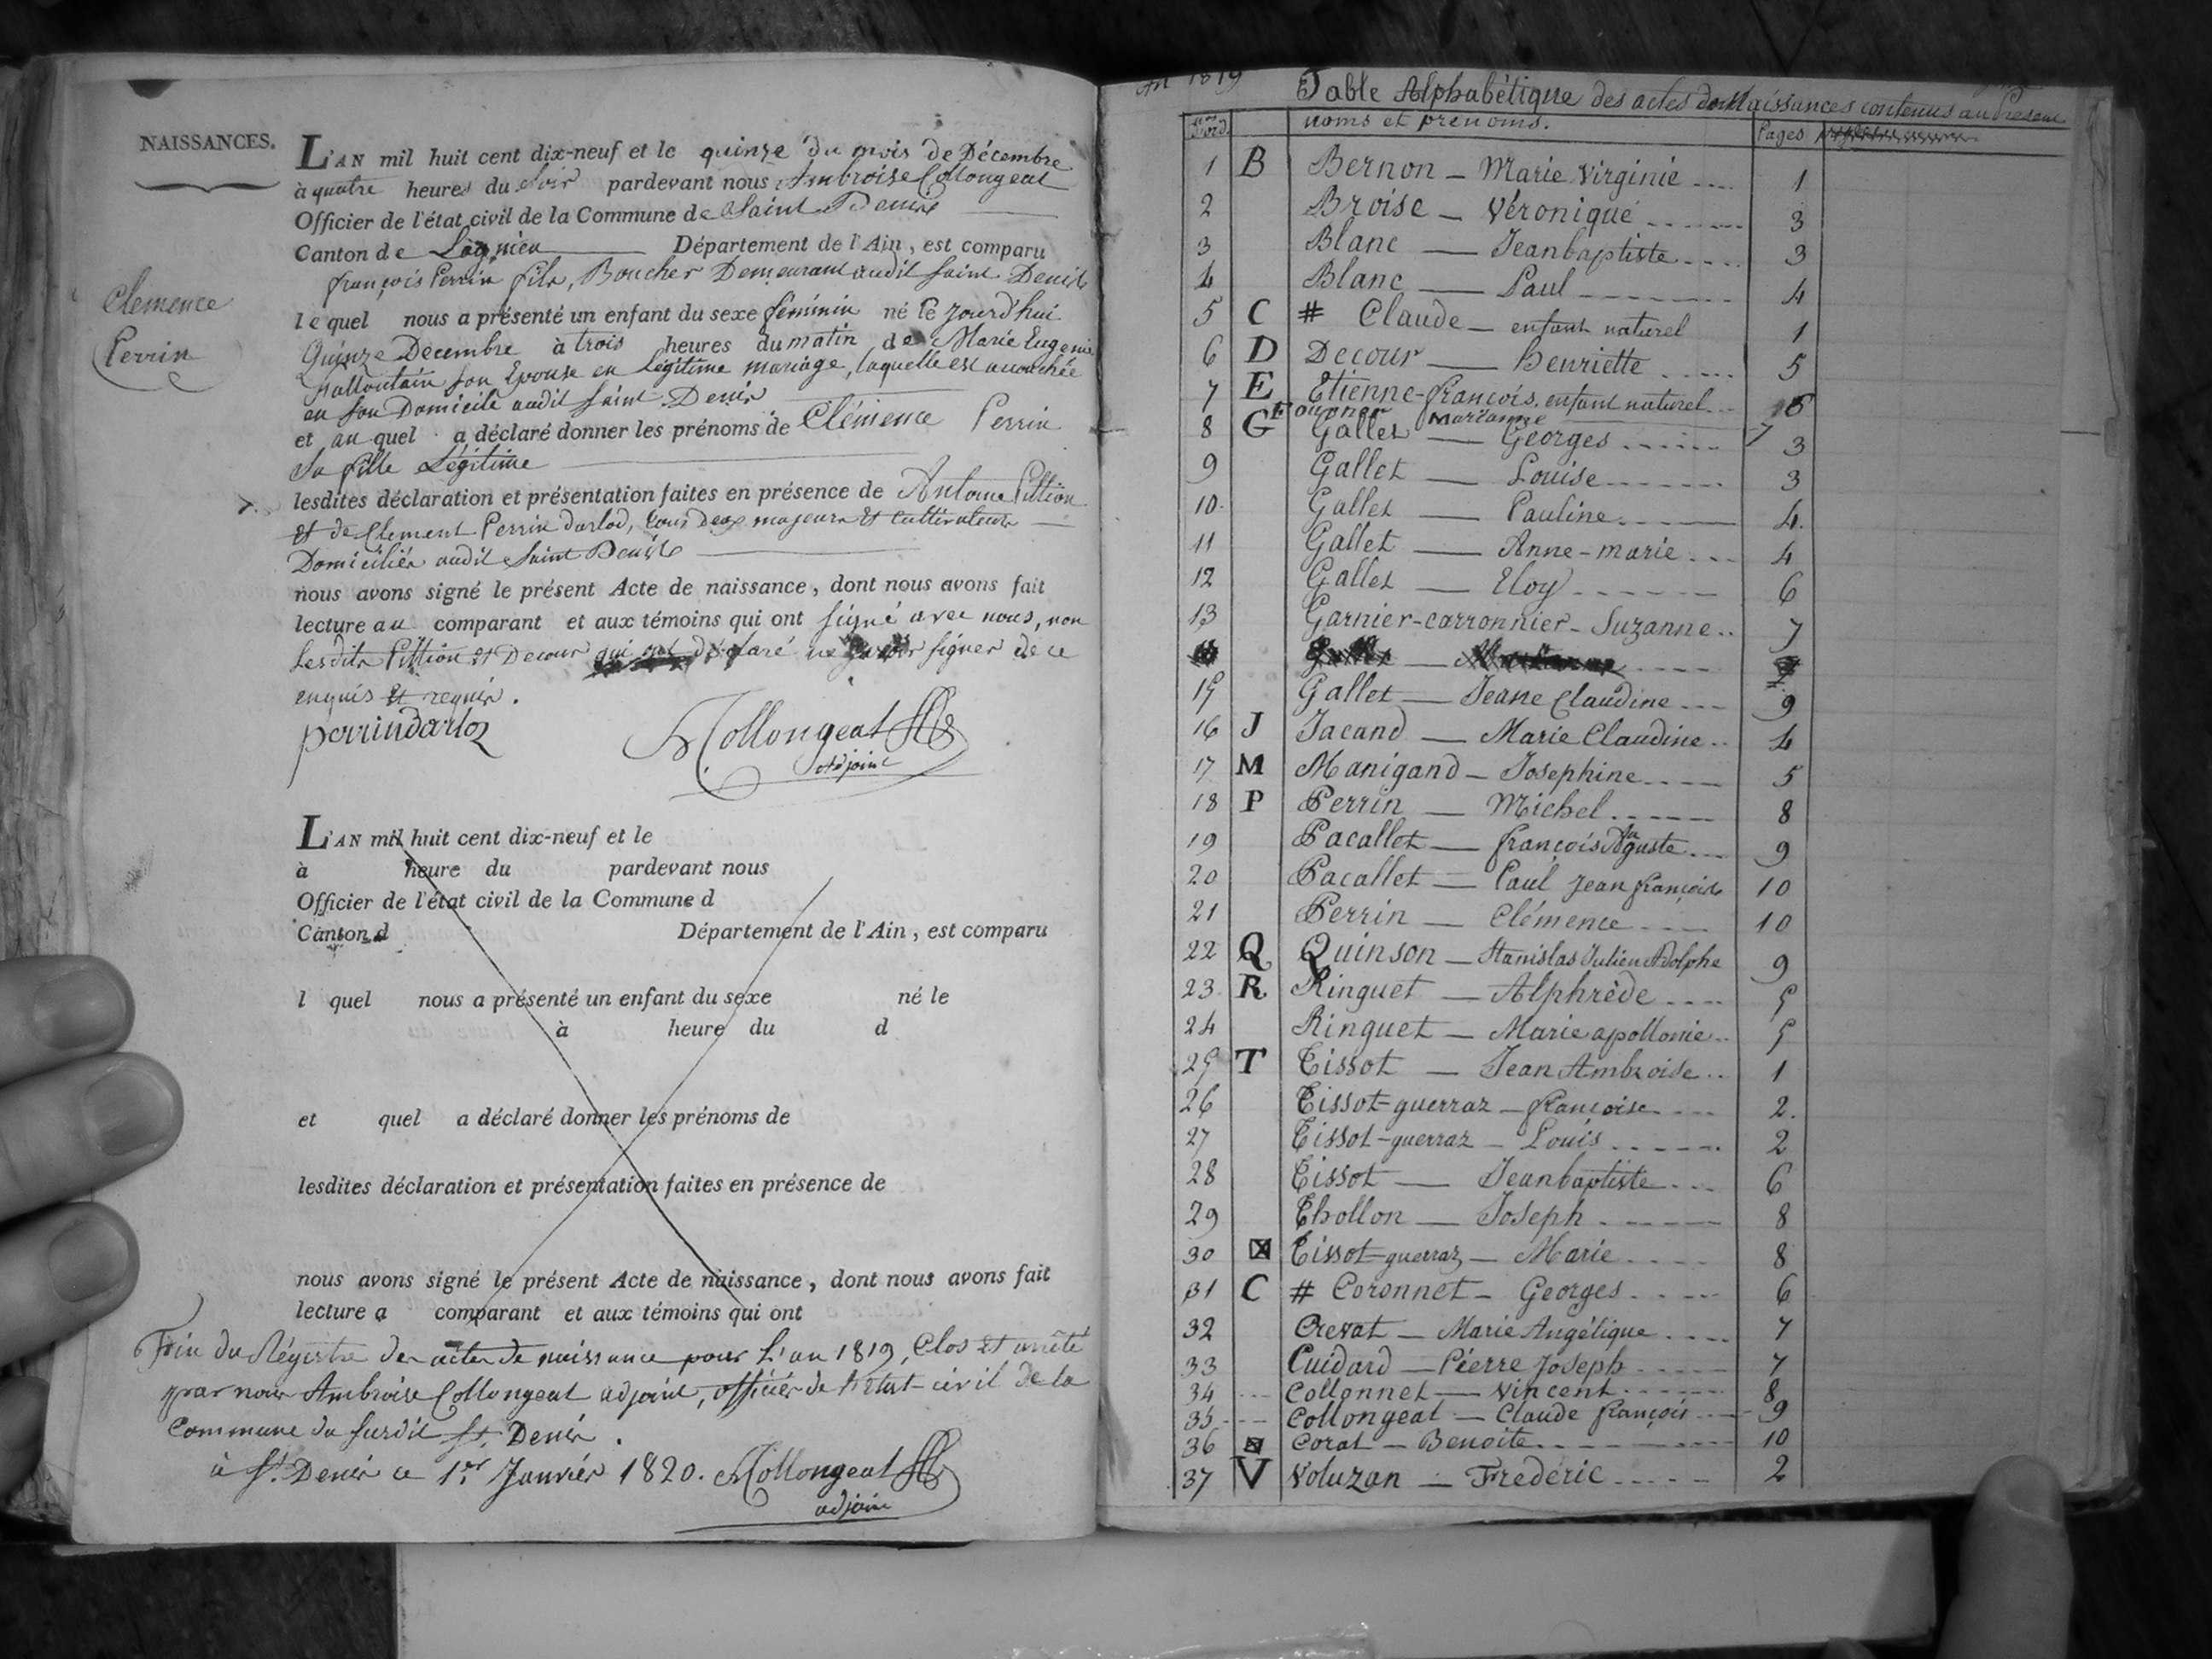 NAISSANCES.
Clemence
Perrin
L'AN mil huit cent dix-neuf et le quinze du mois de Décembre
à quatre heures du Soir pardevant nous Ambroise Collongeat
Officier de l'état civil de la Commune de Saint Denis
Canton de Lagnieu Département de l'Ain, est comparu
françois Perrin fils, Boucher Demeurant audit Saint Denis
lequel nous a présenté un enfant du sexe féminin né le jourd'hui
Quinze Decembre à trois heures du matin de Marie Eugenie
son Epouse en Légitime mariage, laquelle est accouchée
en son Domicile audit Saint Denis
et au quel a déclaré donner les prénoms de Clémence Perrin
Sa fille Légitime
lesdites déclaration et présentation faites en présence de Antoine Pittion
et de Clement Perrin Darloz, tous deux majeurs et cultivateurs
Domiciliés audit Saint Denis
nous avons signé le présent Acte de naissance, dont nous avons fait
lecture au comparant et aux témoins qui ont signé avec nous, non
Lesdits Pittion et Decour qui ont déclaré ne savoir signer de ce
enquis et requis.
perrin Darloz
Collongeat
adjoint
L'AN mil huit cent dix-neuf et le
à heure du pardevant nous
Officier de l'état civil de la Commune d
Canton d Département de l'Ain, est comparu
l quel nous a présenté un enfant du sexe né le
à heure du d
et quel a déclaré donner les prénoms de
lesdites déclaration et présentation faites en présence de
nous avons signé le présent Acte de naissance, dont nous avons fait
lecture a comparant et aux témoins qui ont
Fin du Régistre des actes de naissance pour L'an 1819, Clos et arrêté
par nous Ambroise Collongeat adjoint, officier de l'Etat-civil de la
Commune du susdit St. Denis.
à St. Denis ce 1er Janvier 1820. Collongeat
adjoint
An 1819 Table Alphabétique des actes de Naissances contenus au Présent
Nos d'ord. noms et prénoms. Pages
1 B Bernon - Marie Virginie 1
2 Broise - Véronique 3
3 Blanc - Jeanbaptiste 3
4 Blanc - Paul 4
5 C # Claude - enfant naturel 1
6 D Decour - henriette 5
7 E Etienne-françois, enfant naturel 6
F Marianne 7
8 G Gallet - Georges 3
9 Gallet - Louise 3
10 Gallet - Pauline 4.
11 Gallet - Anne-marie 4
12 Gallet - Eloy 6
13 Garnier-carronnier - Suzanne 7
15 Gallet - Jeane Claudine 9
16 J Jacand - Marie Claudine 4
17 M Manigand - Josephine 5
18 P Perrin - Michel 8
19 Pacallet - françois Auguste 9
20 Pacallet - Paul Jean françois 10
21 Perrin - Clémence 10
22 Q Quinson - Stanislas Julien Adolphe 9
23 R Ringuet - Alphrède 5
24 Ringuet - Marie apollonie 5
25 T Tissot - Jean Ambroise 1
26 Tissot-guerraz - françoise 2.
27 Tissot-guerraz - Louis 2
28 Tissot - Jeanbaptiste 6
29 Thollon - Joseph 8
30 Tissot-guerraz - Marie 8
31 C # Coronnet - Georges 6
32 Crevat - Marie Angélique 7
33 Cuidard - Pierre Joseph 7
34 Collonnet - Vincent 8
35 Collongeat - Claude françois 9
36 Corat - Benoite 10
37 V Voluzan - Frederic 2